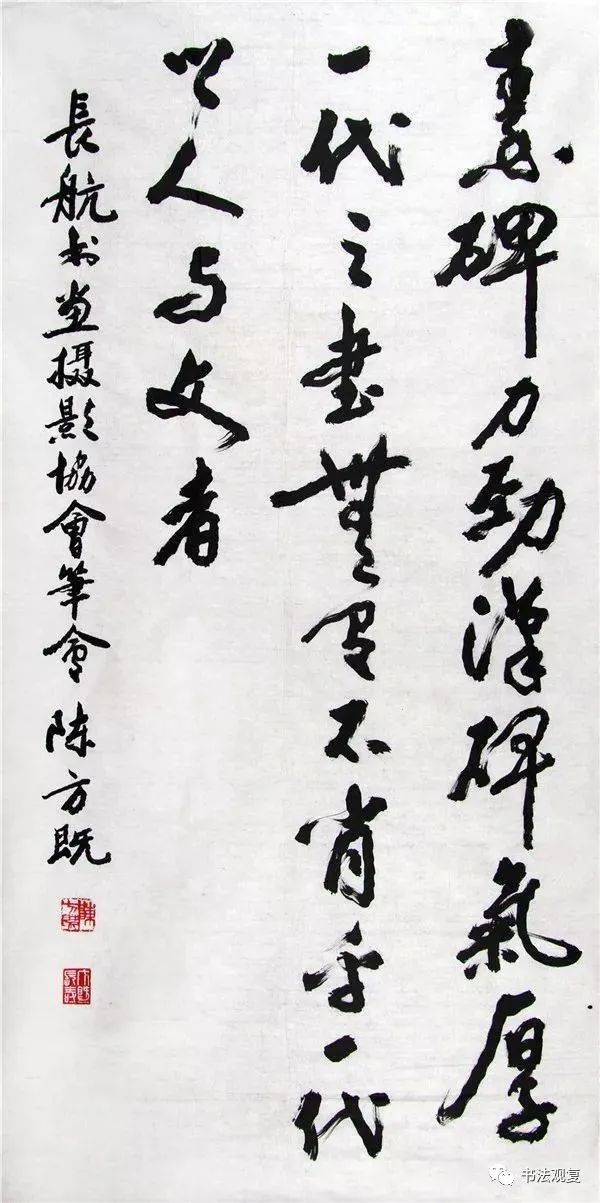 秦碑力劲漢碑氣厚
一代之書無有不肖乎一代
之人与文者
長航书画摄影協會筆會 陈方既
书法观复